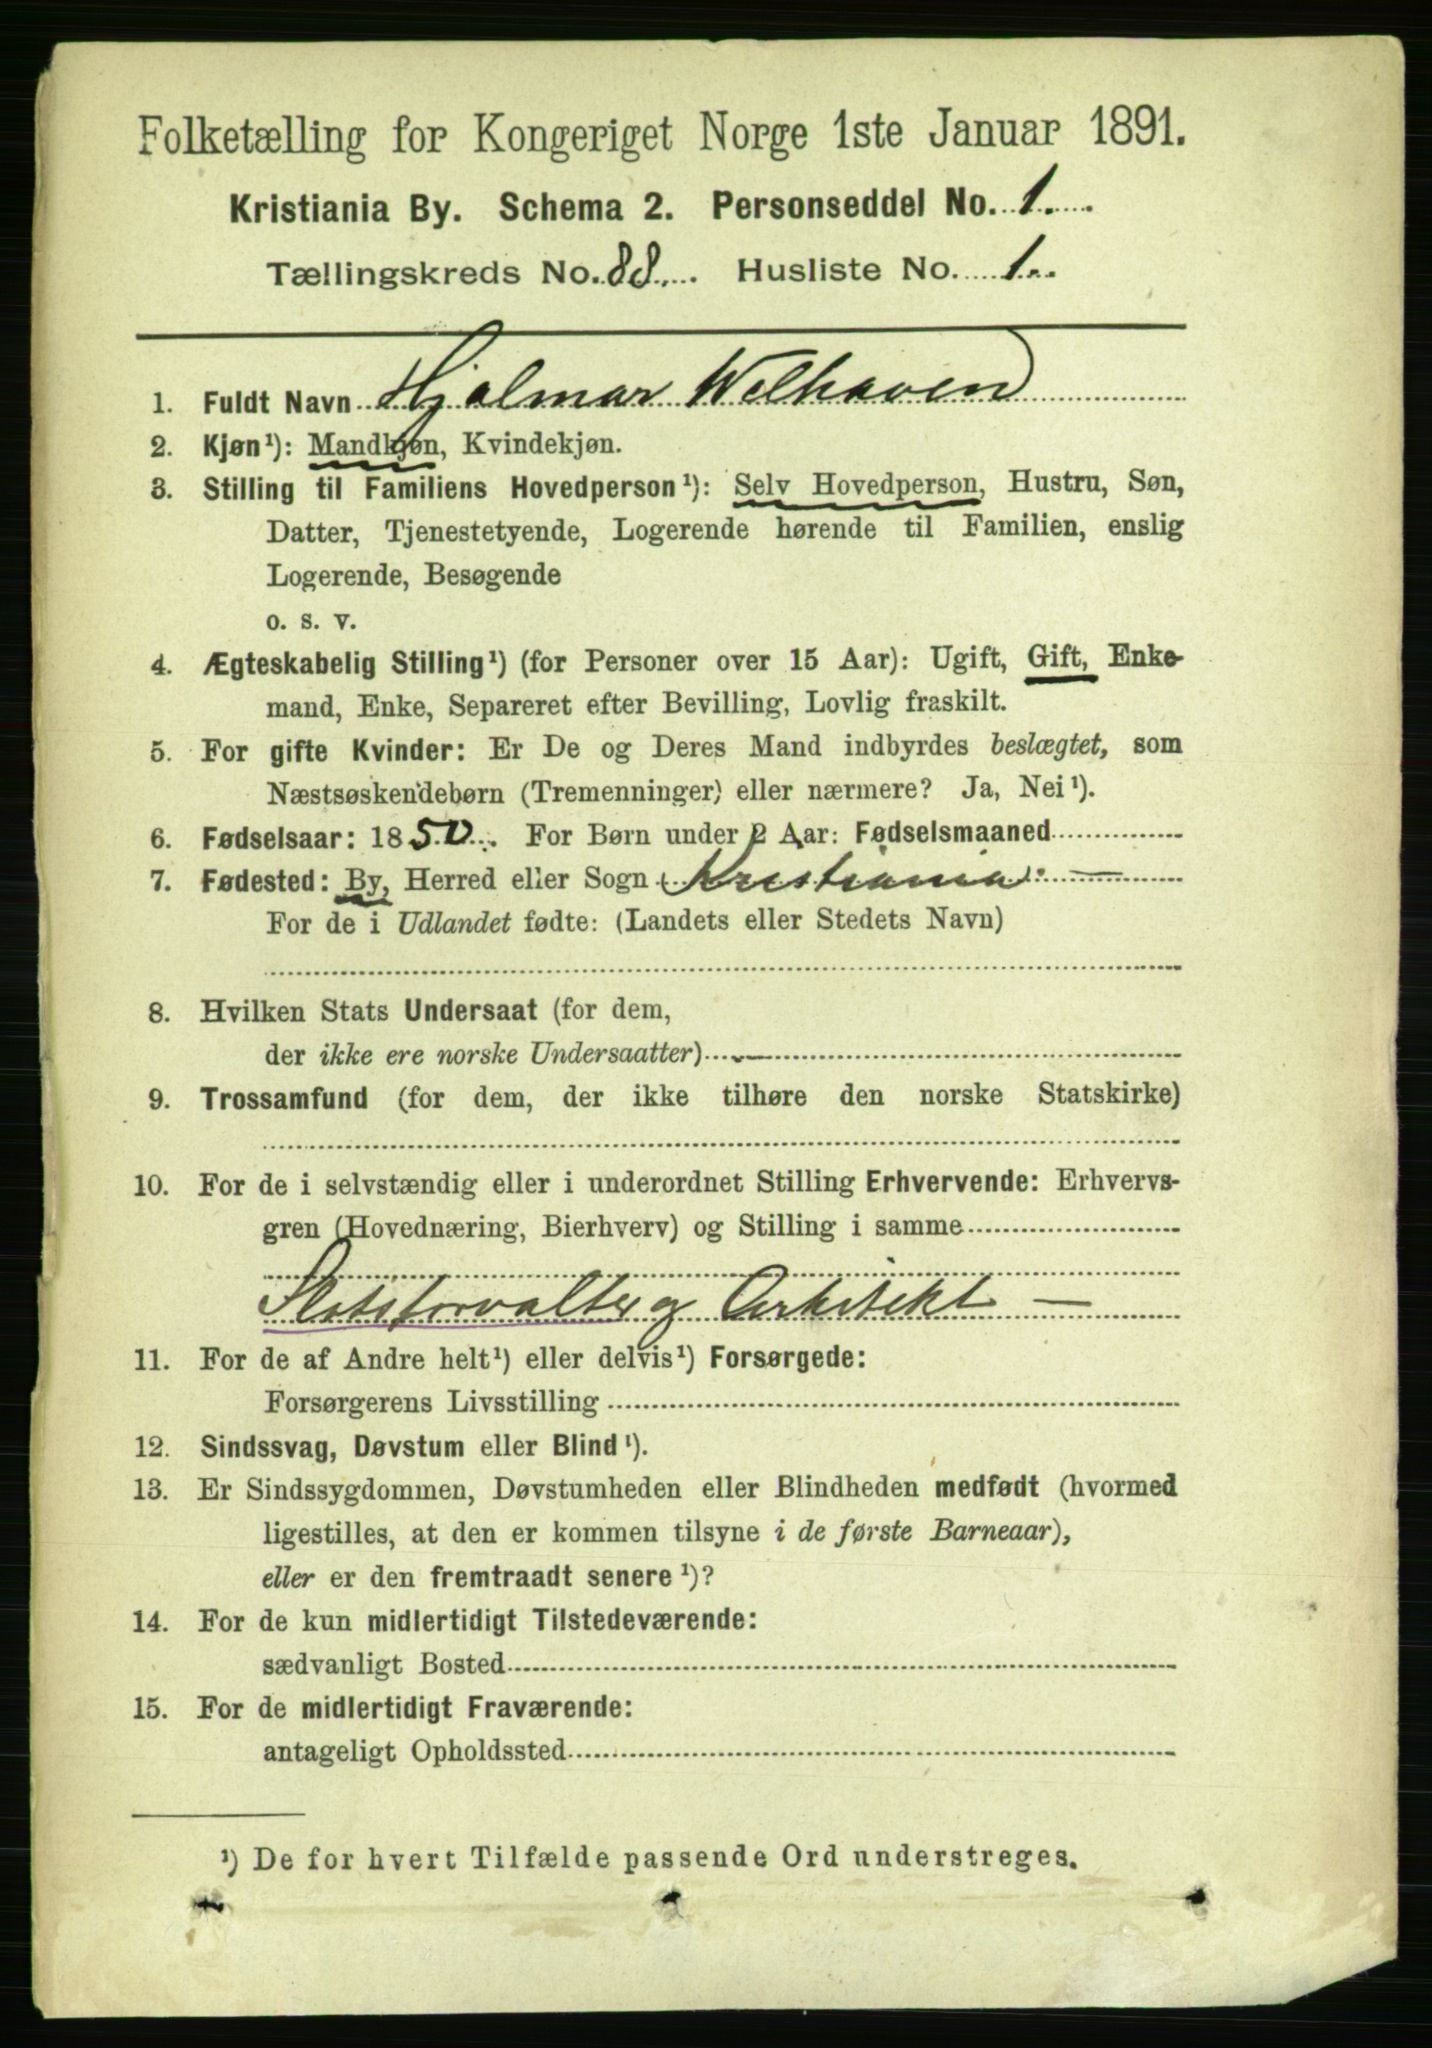 Folketælling for Kongeriget Norge 1ste Januar 1891.
Kristiania By. Schema 2. Personseddel No. 1.
Tællingskreds No. 88. Husliste No. 1.
1. Fuldt Navn Hjalmar Welhaven
2. Kjøn¹): Mandkjøn, Kvindekjøn.
3. Stilling til Familiens Hovedperson¹): Selv Hovedperson, Hustru, Søn,
Datter, Tjenestetyende, Logerende hørende til Familien, enslig
Logerende, Besøgende
o. s. v.
4. Ægteskabelig Stilling¹) (for Personer over 15 Aar): Ugift, Gift, Enke-
mand, Enke, Separeret efter Bevilling, Lovlig fraskilt.
5. For gifte Kvinder: Er De og Deres Mand indbyrdes beslægtet, som
Næstsøskendebørn (Tremenninger) eller nærmere? Ja, Nei¹).
6. Fødselsaar: 1850. For Børn under 2 Aar: Fødselsmaaned
7. Fødested: By, Herred eller Sogn Kristiania. —
For de i Udlandet fødte: (Landets eller Stedets Navn)
8. Hvilken Stats Undersaat (for dem,
der ikke ere norske Undersaatter)
9. Trossamfund (for dem, der ikke tilhøre den norske Statskirke)
10. For de i selvstændig eller i underordnet Stilling Erhvervende: Erhvervs-
gren (Hovednæring, Bierhverv) og Stilling i samme
Slotsforvalter og Arkitekt —
11. For de af Andre helt¹) eller delvis¹) Forsørgede:
Forsørgerens Livsstilling
12. Sindssvag, Døvstum eller Blind¹).
13. Er Sindssygdommen, Døvstumheden eller Blindheden medfødt (hvormed
ligestilles, at den er kommen tilsyne i de første Barneaar),
eller er den fremtraadt senere¹)?
14. For de kun midlertidigt Tilstedeværende:
sædvanligt Bosted
15. For de midlertidigt Fraværende:
antageligt Opholdssted
¹) De for hvert Tilfælde passende Ord understreges.